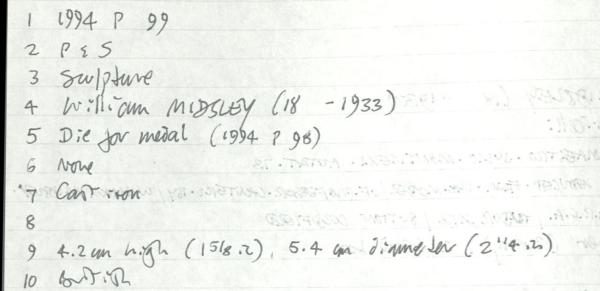 1 1994 P 99
2 P & S
3 Sculpture
4 William MIDGLEY (18 -1933)
5 Die for medal (1994 P 98)
6 None
7 Cast iron
8
9 4.2 cm high (1 5/8 in), 5.4 cm diameter (2 in)
10 British